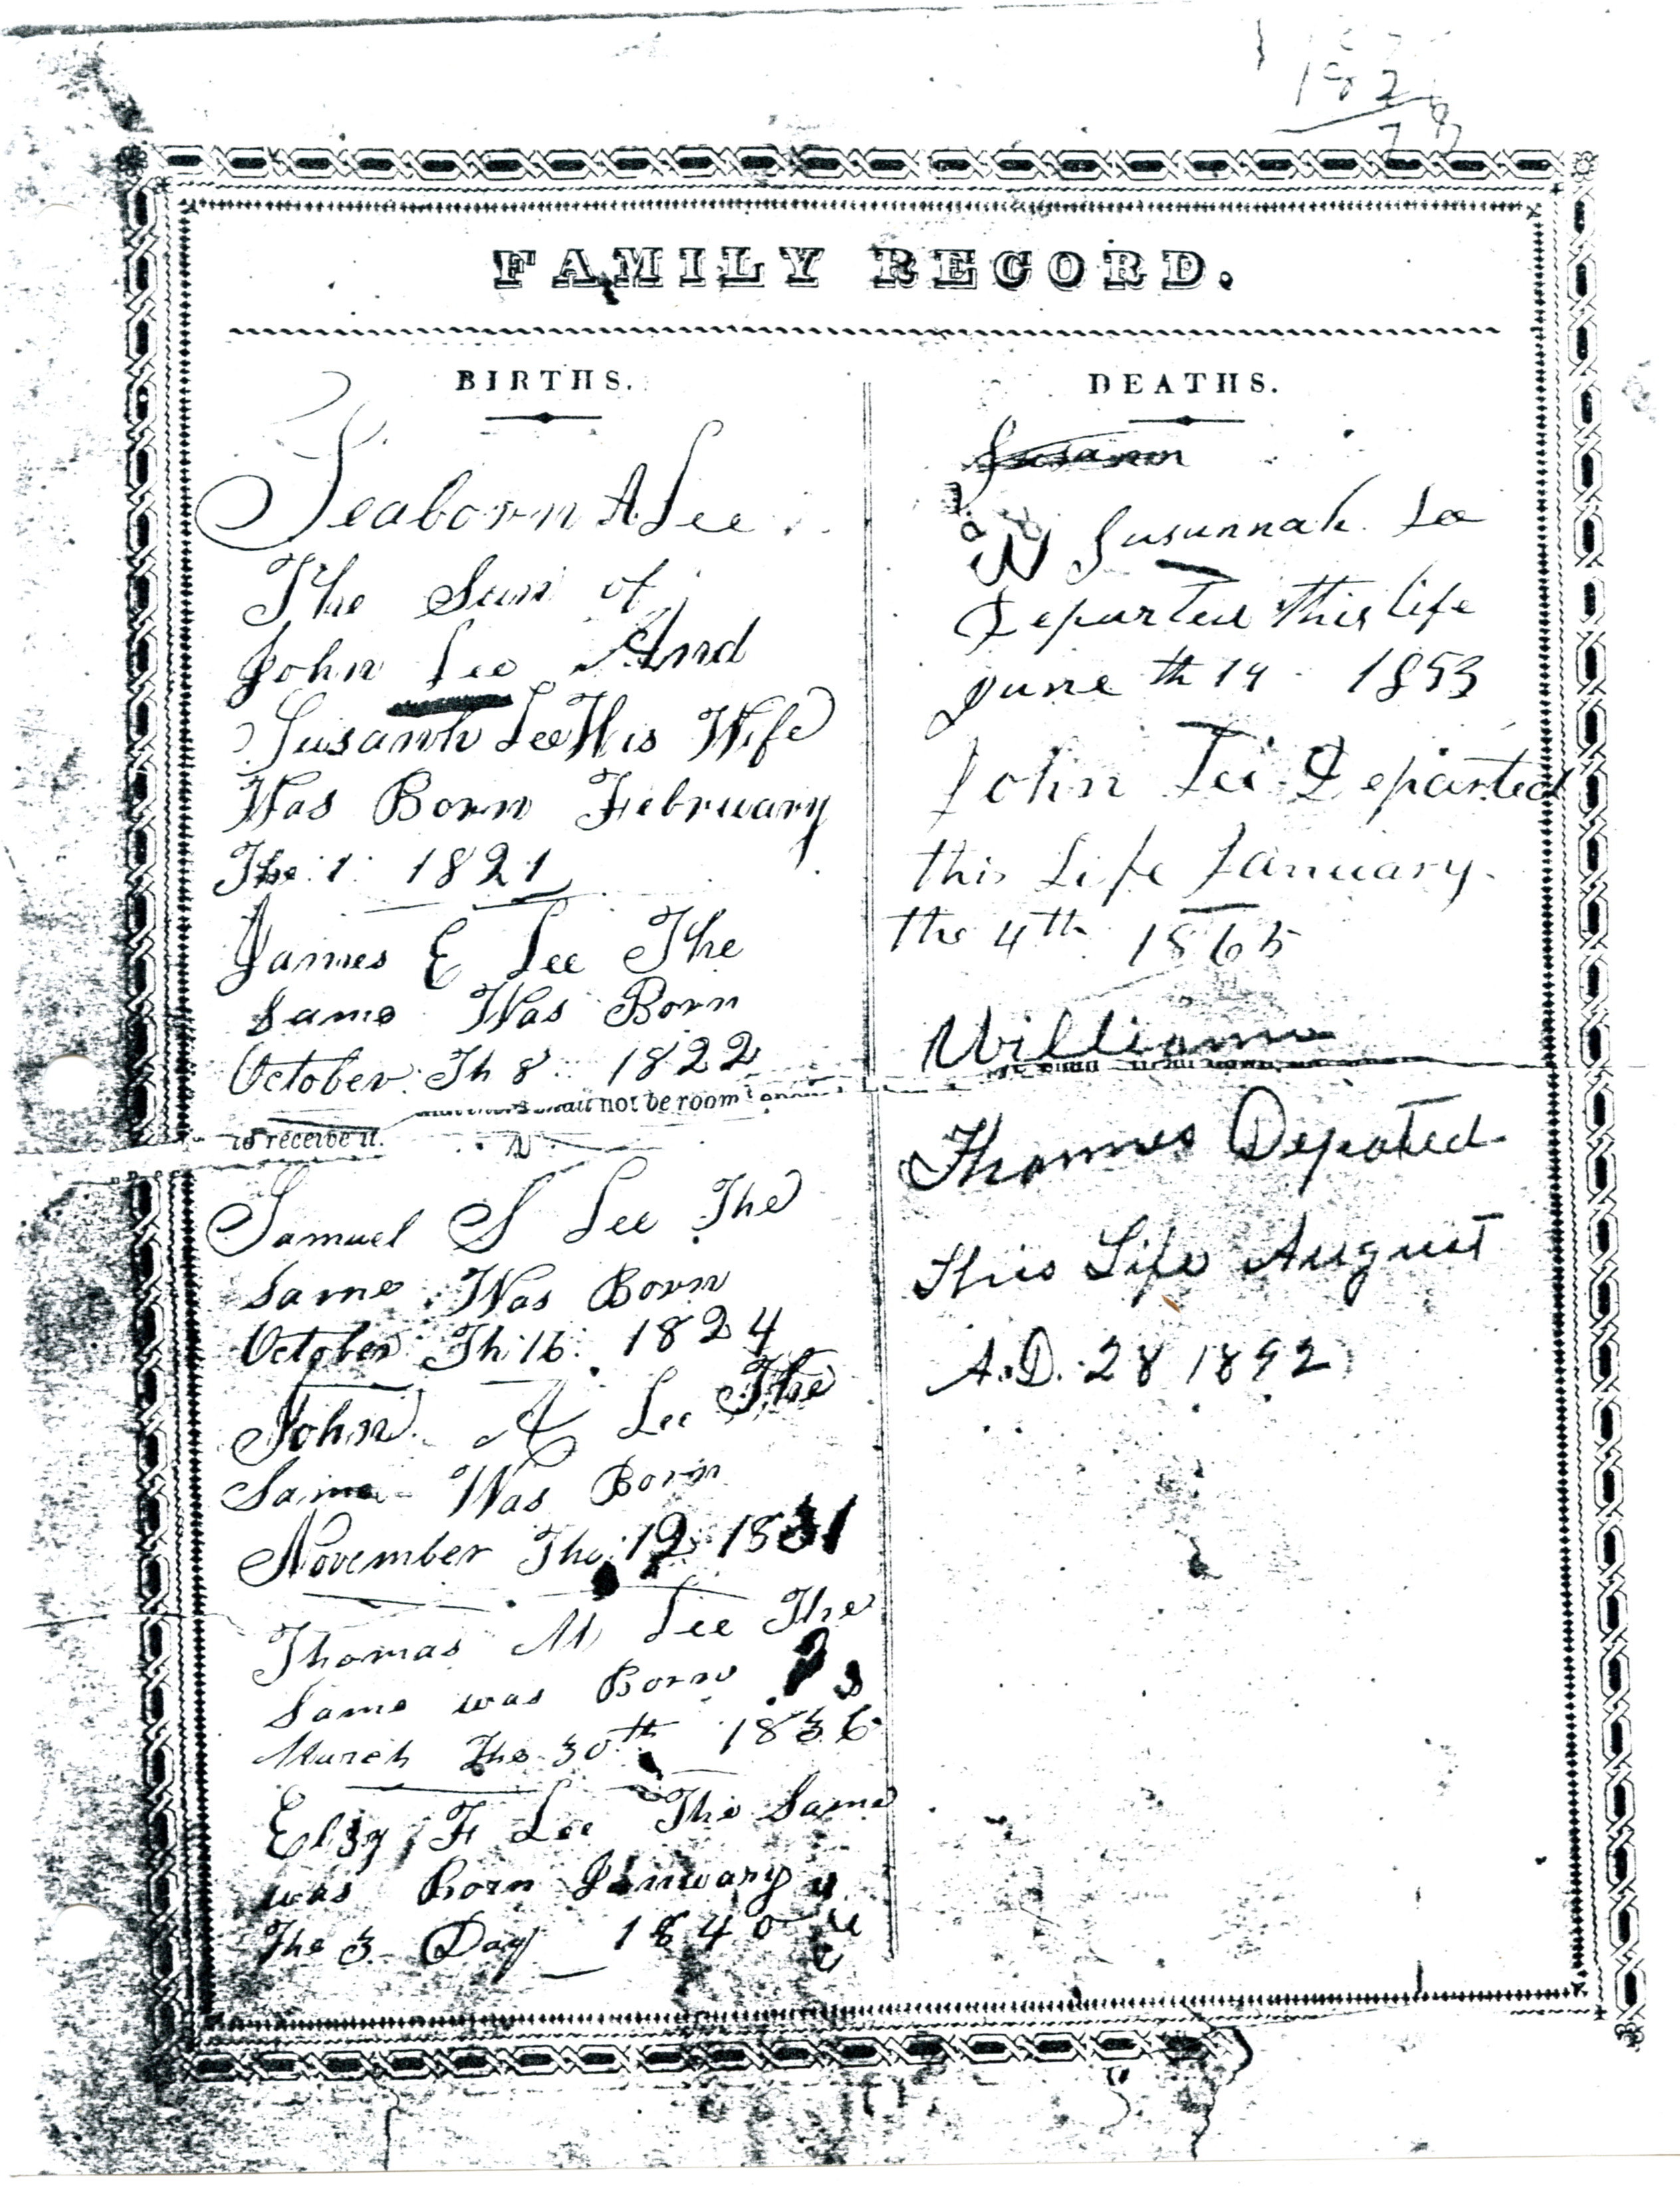 182
FAMILY RECORD.
BIRTHS.
Seaborn A Lee
The Sun of
John Lee And
Susanh Lee His Wife
Was Born February
The 1 1821
James E Lee The
Same Was Born
October Th 8 1822
not be room
to receive it.
Samuel S Lee The
Same Was Born
October Th 16 1824
John A Lee The
Same Was Born
November The 12 1831
Thomas M Lee The
Same was Born
March The 30th 1836
Elzy F Lee The Same
was Born January
The 3 Day 1840
DEATHS.
Susann
Susannah Lee
Departed this life
June th 14 1853
John Lee Departed
this Life January
the 4th 1865
William
Thommes Depated
this Life August
A.D. 28 1892